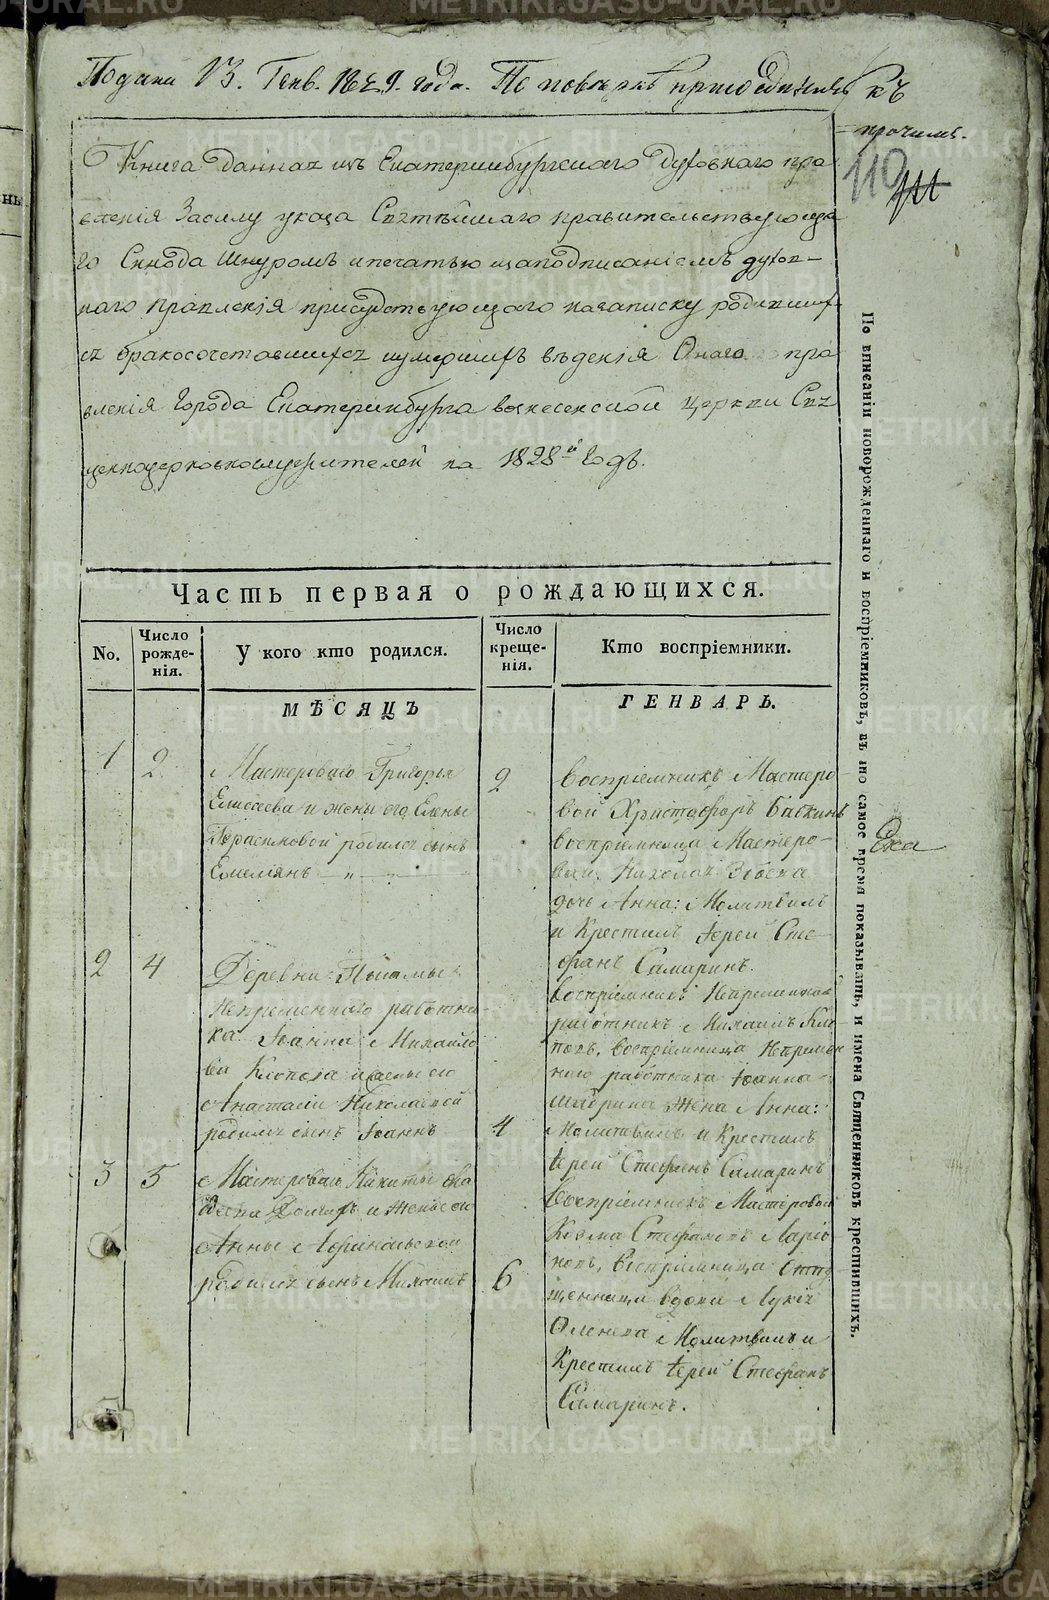 Подана 13. Генв. 1829. года. По поверке приобщить къ
прочимъ.
110
Книга данная изъ Екатеринбургскаго духовнаго пра-
вленія Засилу указа Святѣйшаго правительствующа-
го Синода Шнуромъ ипечатью изаподписаніемъ духов-
наго правленія присудствующаго назаписку родивших-
ся бракосочетавшихся иумершихъ въденія Онаго пра-
вленія Города Екатеринбурга воскесенской церкви Свя
ценноцерковнослужителей на 1828й Годъ.
Часть первая о рождающихся.
No.
Число рожде-нія.
У кого кто родился.
Число креще-нія.
Кто воспріемники.
МѢСЯЦЪ
ГЕНВАРЬ.
1 2
Мастероваго Григорья
Елисѣева и жены его Елены
Герасимовой родился сынъ
Емелiянъ
2
Воспріемникъ Мастеро-
вой Христофоръ Бабкинъ
воспріемница Мастеро-
ваго Николая
дочь Анна: Молитвилъ
и Крестилъ Іерей Сте-
фанъ Самаринъ.
2 4
Деревни Пышмы
Непремѣннаго работни-
ка Іоанна Михайло
ва Клопова и жены его
Анастасіи Николаевой
родился сынъ Іоаннъ
4
Воспріемникъ Непремѣнной
работникъ Михаилъ Кло-
повъ, воспріемница Непремѣн
наго работника Іоанна
жена Анна:
Молитвилъ и Крестилъ
Іерей Стефанъ Самаринъ
3 5
Мастероваго Никиты
и жены его
Анны
родился сынъ Михаилъ
6
Воспріемникъ Мастеровой
Козма Стефановъ Ларіо
новъ, Воспріемница
вдова
Молитвилъ и
Крестилъ Іерей Стефанъ
Самаринъ.
По вписаніи новорожденнаго и воспріемниковъ, въ то самое время показывать, и имена Священниковъ крестившихъ.
METRIKI.GASO-URAL.RU